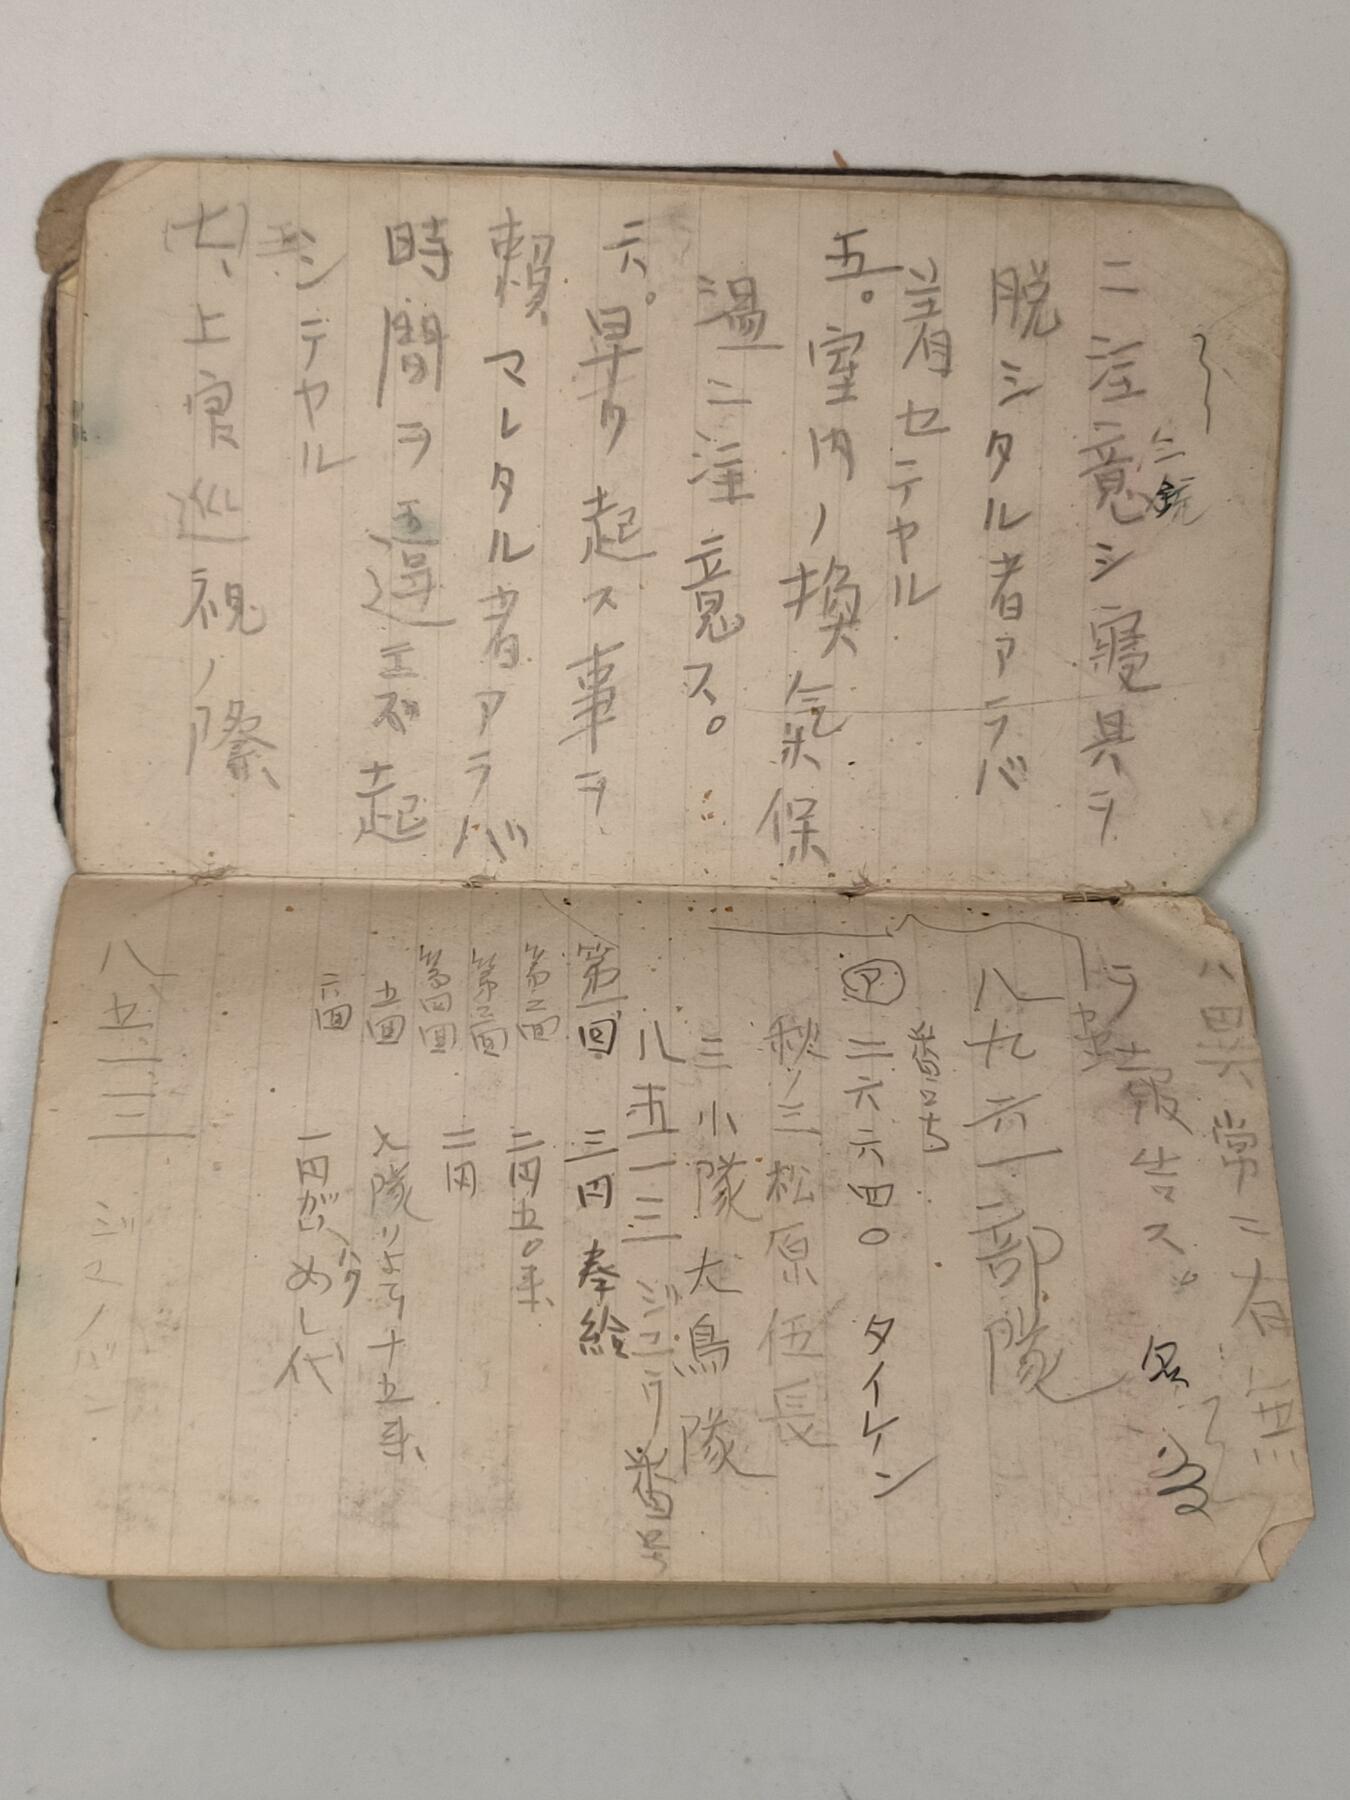 ニ注意シ寝具ヲ
脱シタル者アラバ
着セテヤル
五。室内ノ換氣保
温ニ注意ス。
六。早ク起ス事ヲ
頼マレタル者アラバ
時間ヲ違エズ起
シテヤル
七、上官巡視ノ際
異常ニ有
ヲ報告ス。
部隊
番号
二六六四〇 タイケン
秋ノ三 松原伍長
三小隊 大鳥隊
八五一三 番号
第一回 三円 奉給
第二回 二円五〇
第三回 二円
第四回
五回 十五
六回 一円 めし代
八五一三